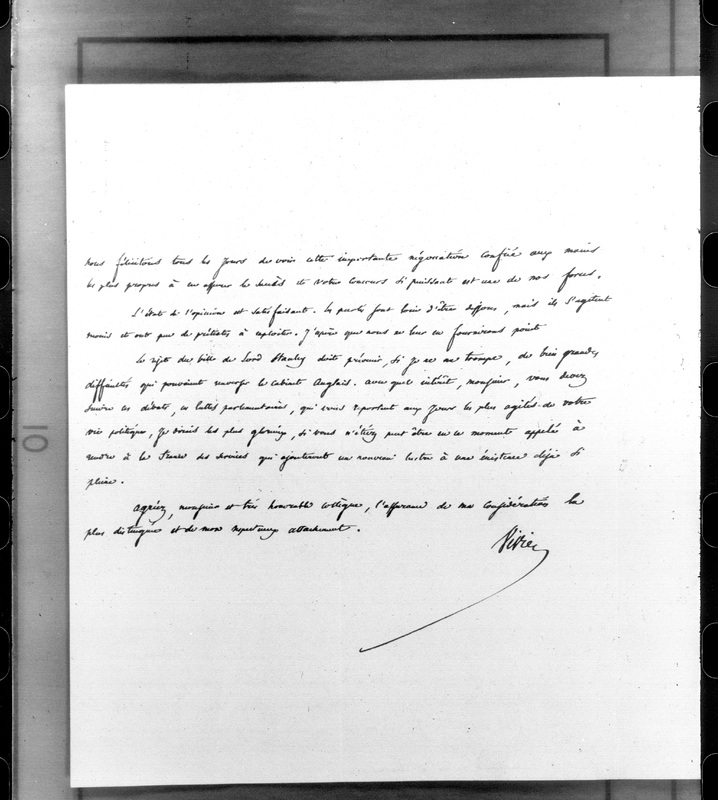 nous félicitons tous les jours de voir cette importante négociation confiée aux mains
les plus propres à en assurer le succès et votre concours si puissant est une de nos forces.
L'état de l'opinion est satisfaisant. les partis sont loin d'être dissous, mais ils s'agitent
moins et ont peu de prétextes à exploiter. J'espère que nous ne leur en fournirons point
Le rejet du bill de Lord Stanley doit prévenir, si je ne me trompe, de bien grandes
difficultés qui pouvaient renverser le cabinet Anglais. avec quel intérêt, monsieur, vous devez
suivre ces débats, ces luttes parlementaires, qui vous reportent aux jours les plus agités de votre
vie politique, je dirais les plus glorieux, si vous n'étiez peut être en ce moment appelé à
rendre à la france des services qui ajouteront un nouveau lustre à une existence déjà si
pleine.
agréez, monsieur et très honorable collègue, l'assurance de ma considération la
plus distinguée et de mon respectueux attachement.
Vivien
10